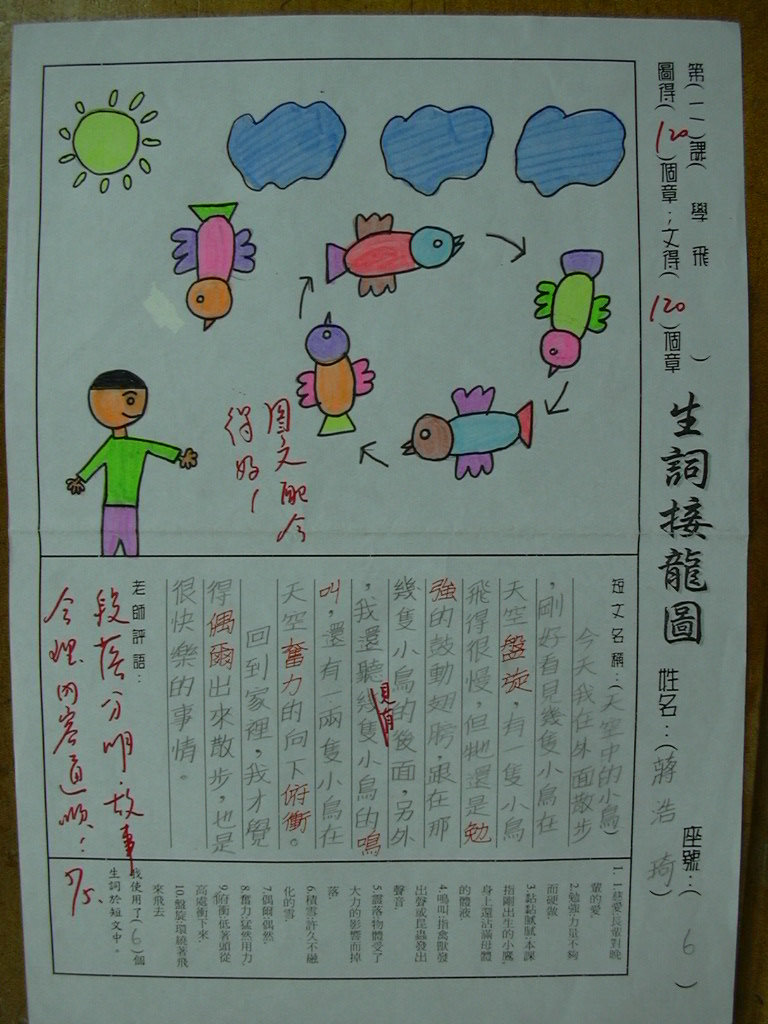 第(二)課(學飛)
圖得(120)個章；文得(120)個章
生詞接龍圖
姓名：(蔣浩琦)
座號：(6)
圖文配合
得好！
短文名稱：(天空中的小鳥)
今天我在外面散步
，剛好看見幾隻小鳥在
天空盤旋，有一隻小鳥
飛得很慢，但牠還是勉
強的鼓動翅膀，跟在那
幾隻小鳥的後面，另外
，我還聽幾隻小鳥的鳴
見有
叫，還有一兩隻小鳥在
天空奮力的向下俯衝。
回到家裡，我才覺
得偶爾出來散步，也是
很快樂的事情。
老師評語：
段落分明，故事
合理，內容通順！
5/5.
1.慈愛長輩對晚
輩的愛
2.勉強力量不夠
而硬做
3.黏黏膩膩本課
指剛出生的小鷹，
身上還沾滿母體
的體液
4.鳴叫：指禽獸發
出聲或昆蟲發出
聲音
5.震落物體受了
大力的影響而掉
落
6.積雪：許久不融
化的雪
7.偶爾偶然
8.奮力猛然用力
9.俯衝低著頭從
高處衝下來
10.盤旋環繞著飛
來飛去
我使用了(6)個
生詞於短文中。